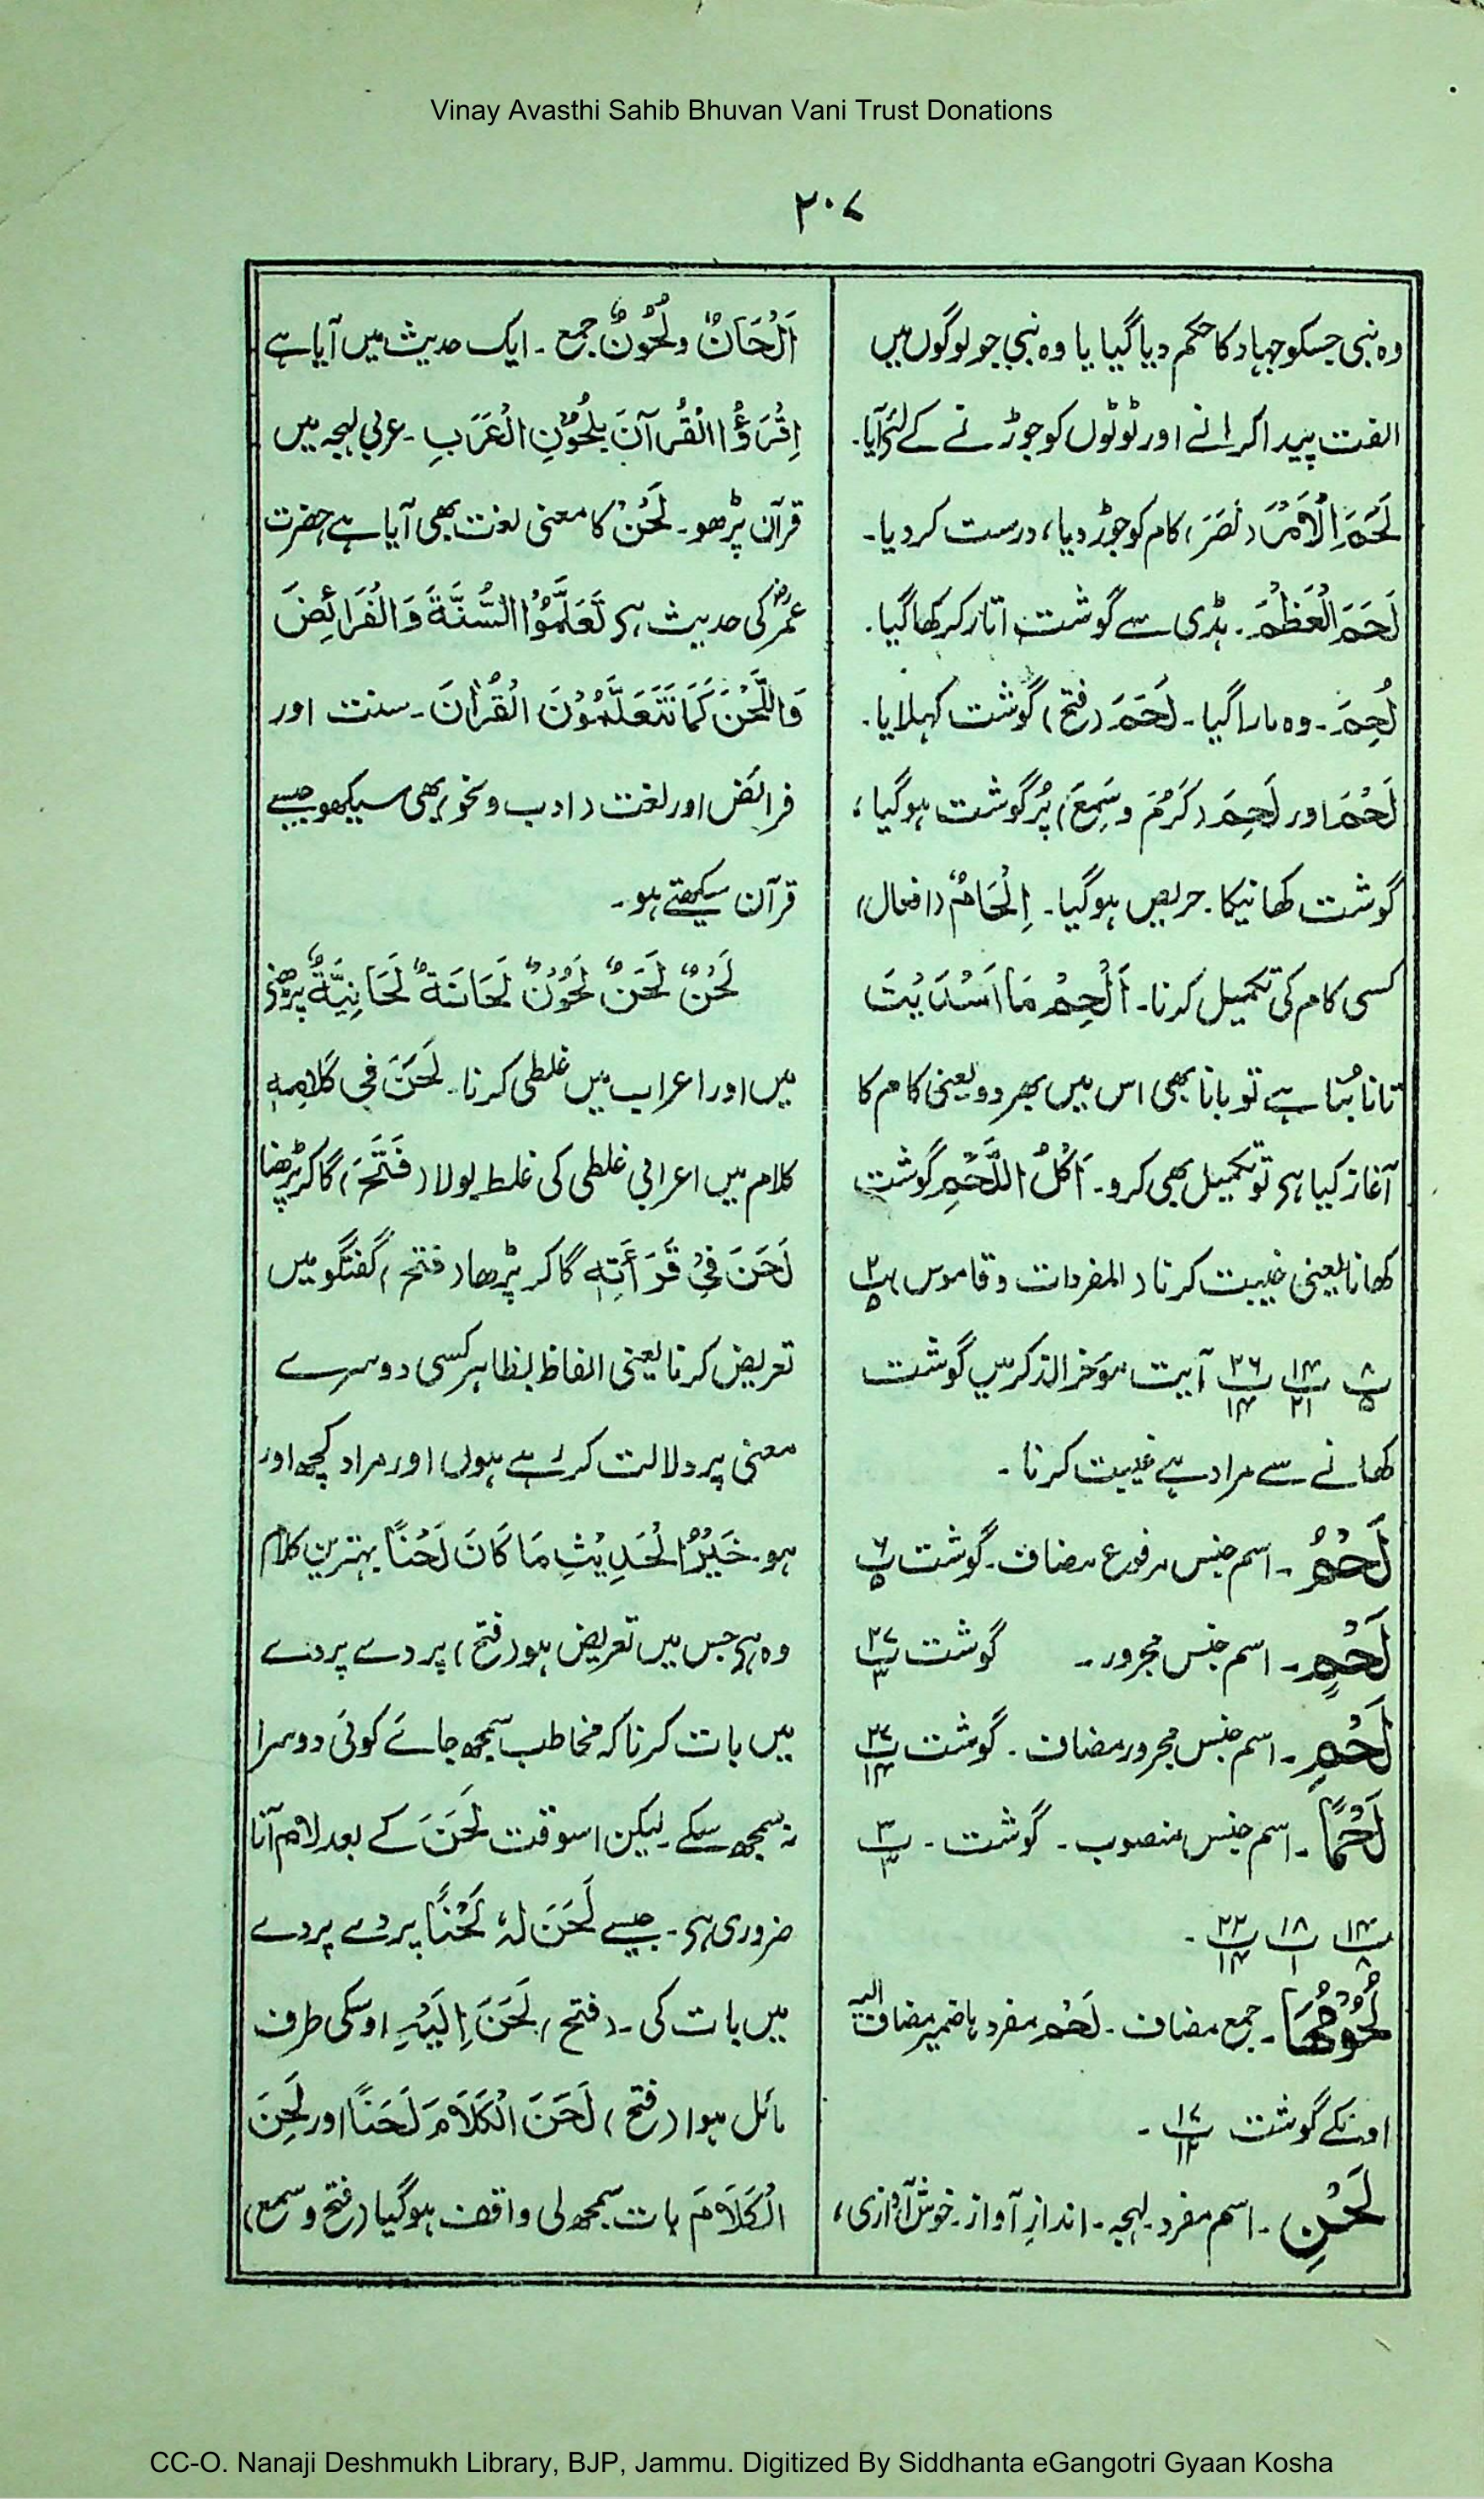 Vinay Avasthi Sahib Bhuvan Vani Trust Donations
۲۰۷
وہ نبی جسکو جہاد کا حکم دیا گیا یا وہ نبی جو لوگوں میں
الفت پیدا کرانے اور ٹوٹوں کو جوڑنے کے لئے آیا۔
لَحَمَ الْاَمْرَ (نَصَرَ) کام کو جوڑ دیا، درست کر دیا۔
لَحَمَ الْعَظْمَ۔ ہڈی سے گوشت اتار کر کھا گیا۔
لُحِمَ۔ وہ مارا گیا۔ لَحَمَ (فتح) گوشت کہلایا۔
لَحُمَ اور لَحِمَ (کَرُمَ و سَمِعَ) پُر گوشت ہو گیا،
گوشت کھانیکا حریص ہو گیا۔ اِلْحَامٌ (افعال)
کسی کام کی تکمیل کرنا۔ اَلْحِمْ مَا اَسْدَیْتَ
تانا بُنتا ہے تو بانا بھی اس میں بھر دو یعنی کام کا
آغاز کیا ہے تو تکمیل بھی کرو۔ اَکْلُ اللَّحْمِ گوشت
کھانا یعنی غیبت کرنا (المفردات و قاموس) پ۲/۵
پ۸/۵ پ۱۴/۲۱ پ۲۶/۱۴ آیت مؤخر الذکر میں گوشت
کھانے سے مراد ہے غیبت کرنا۔
لَحْمُ۔ اسم جنس مرفوع مضاف۔ گوشت پ۶/۵
لَحْمٍ۔ اسم جنس مجرور۔ گوشت پ۲۷/۳
لَحْمِ۔ اسم جنس مجرور مضاف۔ گوشت پ۲۷/۱۴
لَحْمًا۔ اسم جنس منصوب۔ گوشت۔ پ۳/۳
پ۱۴/۸ پ۱۸/۱ پ۲۲/۱۴۔
لُحُوْمُهَا۔ جمع مضاف۔ لَحْم مفرد ہا ضمیر مضاف الیہ
اونکے گوشت پ۱۷/۱۲۔
لَحْنِ۔ اسم مفرد۔ لہجہ۔ اندازِ آواز۔ خوش آوازی،
اَلْحَانٌ و لُحُوْنٌ جمع۔ ایک حدیث میں آیا ہے
اِقْرَؤُا الْقُرآنَ بِلُحُوْنِ الْعَرَبِ۔ عربی لہجہ میں
قرآن پڑھو۔ لَحْنٌ کا معنی لغت بھی آیا ہے حضرت
عمرؓ کی حدیث ہے تَعَلَّمُوْا السُّنَّةَ وَالْفَرَائِضَ
وَاللَّحْنَ کَمَا تَتَعَلَّمُوْنَ الْقُرْاٰنَ۔ سنت اور
فرائض اور لغت (ادب و نحو) بھی سیکھو جیسے
قرآن سیکھتے ہو۔
لَحْنٌ لَحَنٌ لُحُوْنٌ لَحَانَةٌ لَحَانِيَّةٌ پڑھنے
میں اور اعراب میں غلطی کرنا۔ لَحَنَ فِی کَلَامِهٖ
کلام میں اعرابی غلطی کی غلط بولا (فَتَحَ) گا کر پڑھنا
لَحَنَ فِیْ قَرَأَتِهٖ گا کر پڑھا (فتح) گفتگو میں
تعریض کرنا یعنی الفاظ بظاہر کسی دوسرے
معنی پر دلالت کر رہے ہوں اور مراد کچھ اور
ہو۔ خَیْرُ الْحَدِیْثِ مَا کَانَ لَحْنًا بہترین کلام
وہ ہے جس میں تعریض ہو (فتح) پردے پردے
میں بات کرنا کہ مخاطب سمجھ جائے کوئی دوسرا
نہ سمجھ سکے۔ لیکن اسوقت لَحَنَ کے بعد لام آنا
ضروری ہے۔ جیسے لَحَنَ لَهٗ لَحْنًا پردے پردے
میں بات کی۔ (فتح) لَحَنَ اِلَیْهِ اوسکی طرف
مائل ہوا (فتح) لَحَنَ الْکَلَامَ لَحَنًا اور لَحِنَ
الْکَلَامَ بات سمجھ لی واقف ہو گیا (فتح و سمع)
CC-O. Nanaji Deshmukh Library, BJP, Jammu. Digitized By Siddhanta eGangotri Gyaan Kosha